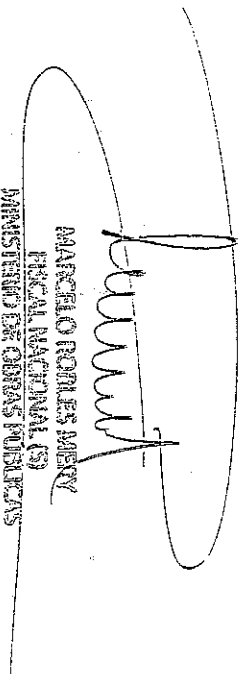 MARCELO ROBLES MERY
FISCAL NACIONAL (S)
MINISTERIO DE OBRAS PUBLICAS